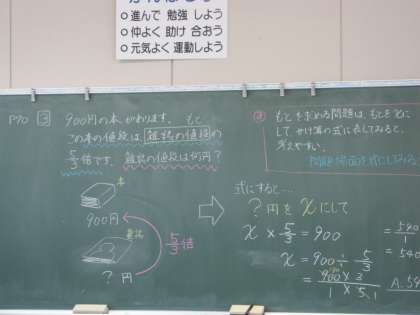 進んで 勉強 しよう
仲よく 助け 合おう
元気よく 運動しよう
P70 3 900円の本があります。 もと
この本の値段は、雑誌の値段の
5/3倍です。雑誌の値段は何円?
本
900円
雑誌
5/3倍
? 円
もとを求める問題は、もとをxに
して かけ算の式に表してみると、
考えやすい。
式にすると…
? 円を xにして
x × 5/3 = 900
x = 900 ÷ 5/3
= 900 × 3
1 × 5
= 540
1
= 540
A. 54